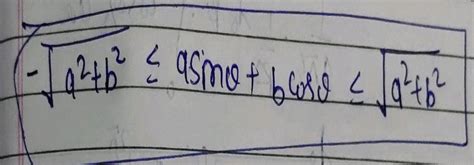 -√a²+b² ≤ asinθ + bcosθ ≤ √a²+b²